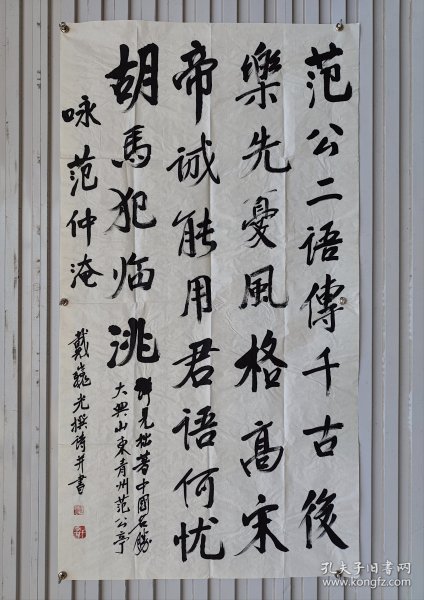 范公二语傳千古後
樂先憂風格高宋
帝诚能用君语何忧
胡马犯临洮
詳见拙著中國名勝
大典山東青州范公亭
咏范仲淹
戴巍光撰诗并書
孔夫子旧书网
www.kongfz.com